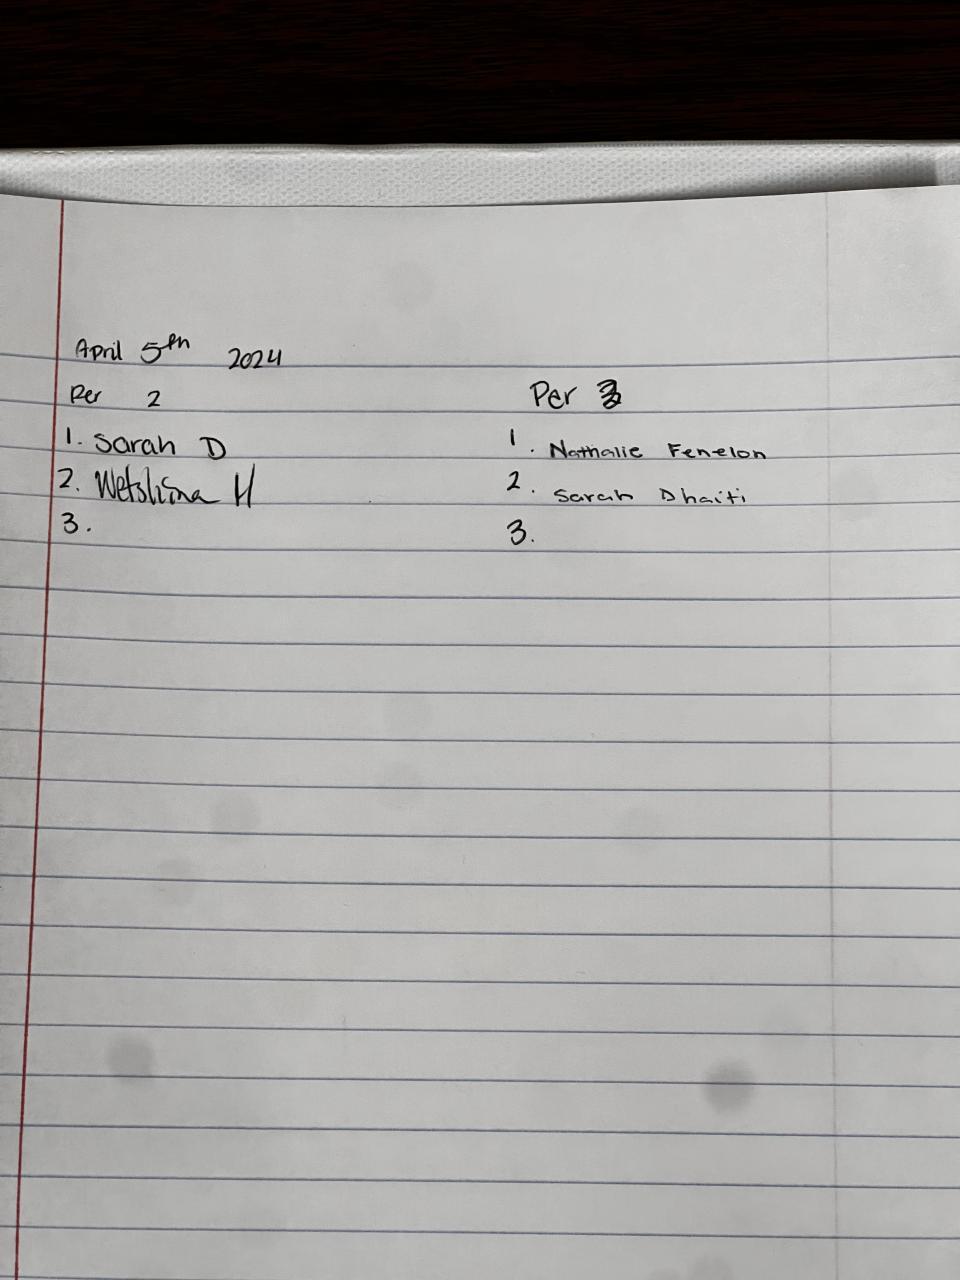 April 5th 2024
Per 2
1. Sarah D
2. Wetshina H
3.
Per 3
1. Nathalie Fenelon
2. Sarah Dhaiti
3.